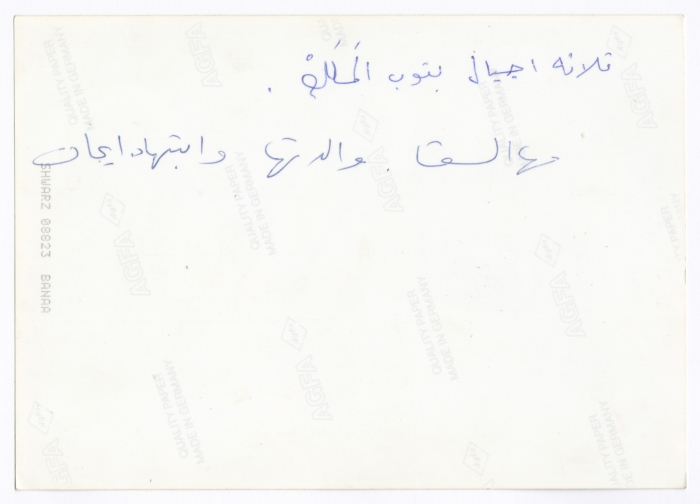 ثلاثه اجيال بتوب الملكه .
مها السقا . والدتها وابنتها دايجان
SHWARZ 08823 BANAA
AGFA
QUALITY PAPER
MADE IN GERMANY